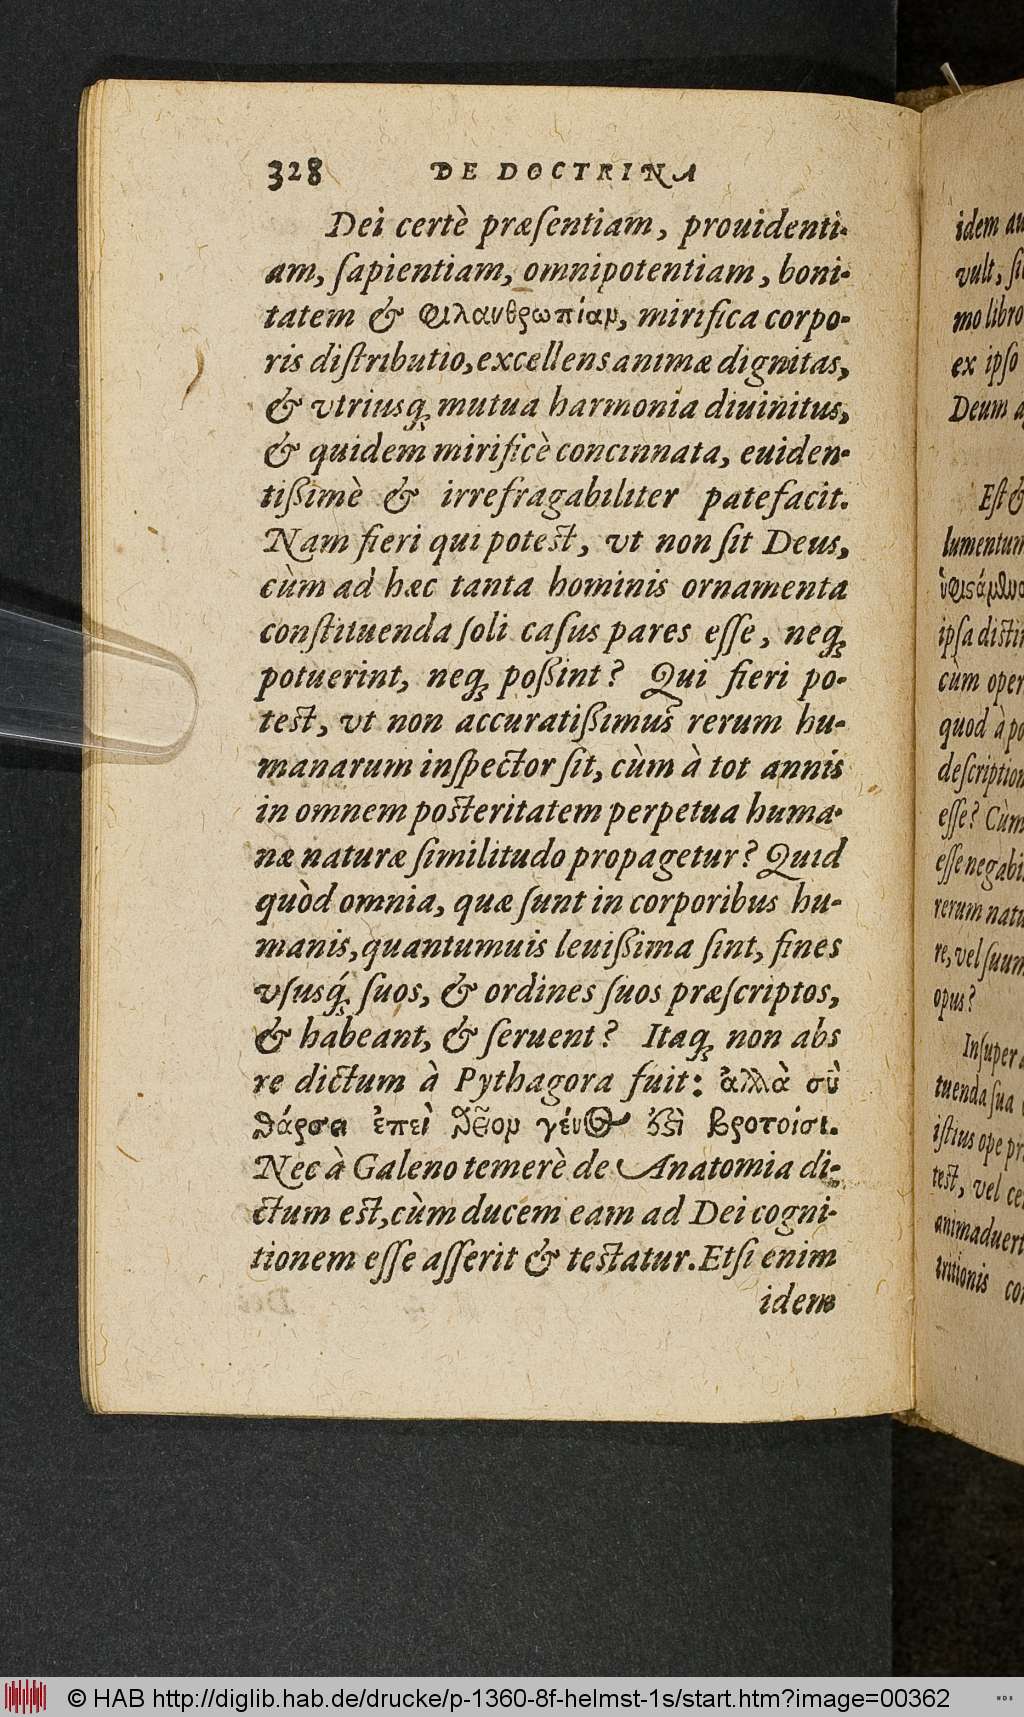 328 DE DOCTRINA
Dei certè præſentiam, prouidenti-
am, ſapientiam, omnipotentiam, boni-
tatem & φιλανθρωπίαν, mirifica corpo-
ris diſtributio, excellens animæ dignitas,
& vtriusq; mutua harmonia diuinitus,
& quidem mirificè concinnata, euiden-
tißimè & irrefragabiliter patefacit.
Nam fieri qui potest, vt non ſit Deus,
cùm ad hæc tanta hominis ornamenta
conſtituenda ſoli caſus pares eſſe, neq;
potuerint, neq; poßint? Qui fieri po-
test, vt non accuratißimus rerum hu-
manarum inſpector ſit, cùm à tot annis
in omnem posteritatem perpetua huma-
næ naturæ ſimilitudo propagetur? Quid
quòd omnia, quæ ſunt in corporibus hu-
manis, quantumuis leuißima ſint, fines
vſusq́; ſuos, & ordines ſuos præſcriptos,
& habeant, & ſeruent? Itaq; non abs
re dictum à Pythagora fuit: ἀλλὰ σὺ
θάρσει ἐπεὶ θεῖον γένος ἐστὶ βροτοίσι.
Nec à Galeno temerè de Anatomia di-
ctum est, cùm ducem eam ad Dei cogni-
tionem eſſe aſſerit & testatur. Etſi enim
idem
idem
vult, ſi
mo libro
ex ipſo
Deum
Eſt &
lumentum
ipſa
cùm oper
quod à
deſcription
eſſe? Cùm
eſſe
rerum
re, vel ſuum
opus?
Inſuper
tuenda ſua
iſtius ope
test, vel
animaduert
tritionis
© HAB http://diglib.hab.de/drucke/p-1360-8f-helmst-1s/start.htm?image=00362